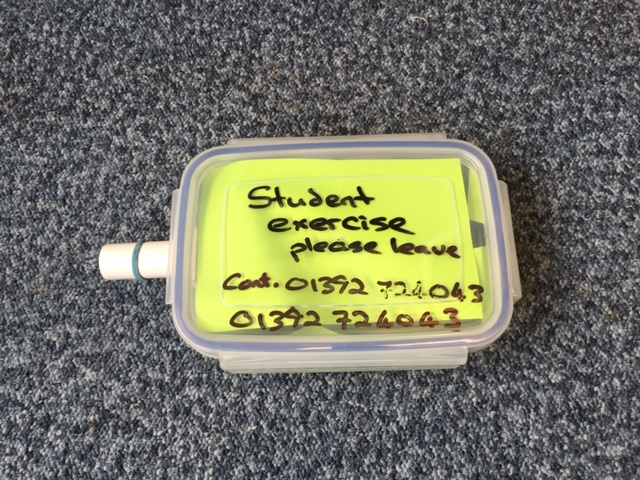 Student
exercise
please leave
Cont. 01392 724043
01392 724043